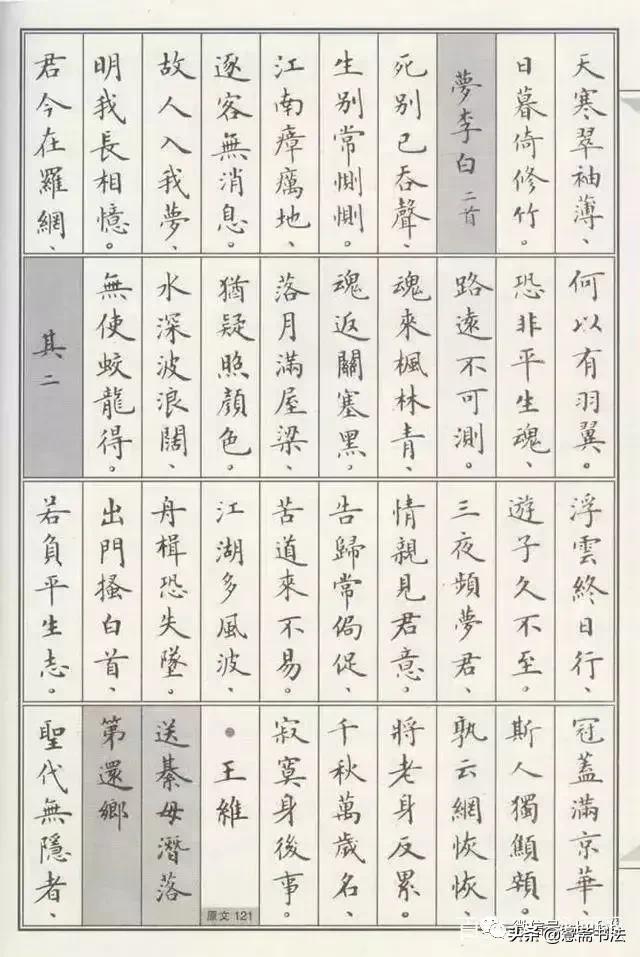 天寒翠袖薄、
日暮倚修竹。
夢李白二首
死別已吞聲、
生別常惻惻。
江南瘴癘地、
逐客無消息。
故人入我夢、
明我長相憶。
君今在羅網、
何以有羽翼。
恐非平生魂、
路遠不可測。
魂來楓林青、
魂返關塞黑。
落月滿屋梁、
猶疑照顏色。
水深波浪闊、
無使蛟龍得。
其二
浮雲終日行、
遊子久不至。
三夜頻夢君、
情親見君意。
告歸常侷促、
苦道來不易。
江湖多風波、
舟楫恐失墜。
出門搔白首、
若負平生志。
冠蓋滿京華、
斯人獨顦顇。
孰云網恢恢、
將老身反累。
千秋萬歲名、
寂寞身後事。
●王維
原文 121
送綦毋潛落
第還鄉
聖代無隱者、
头条 @斋书法